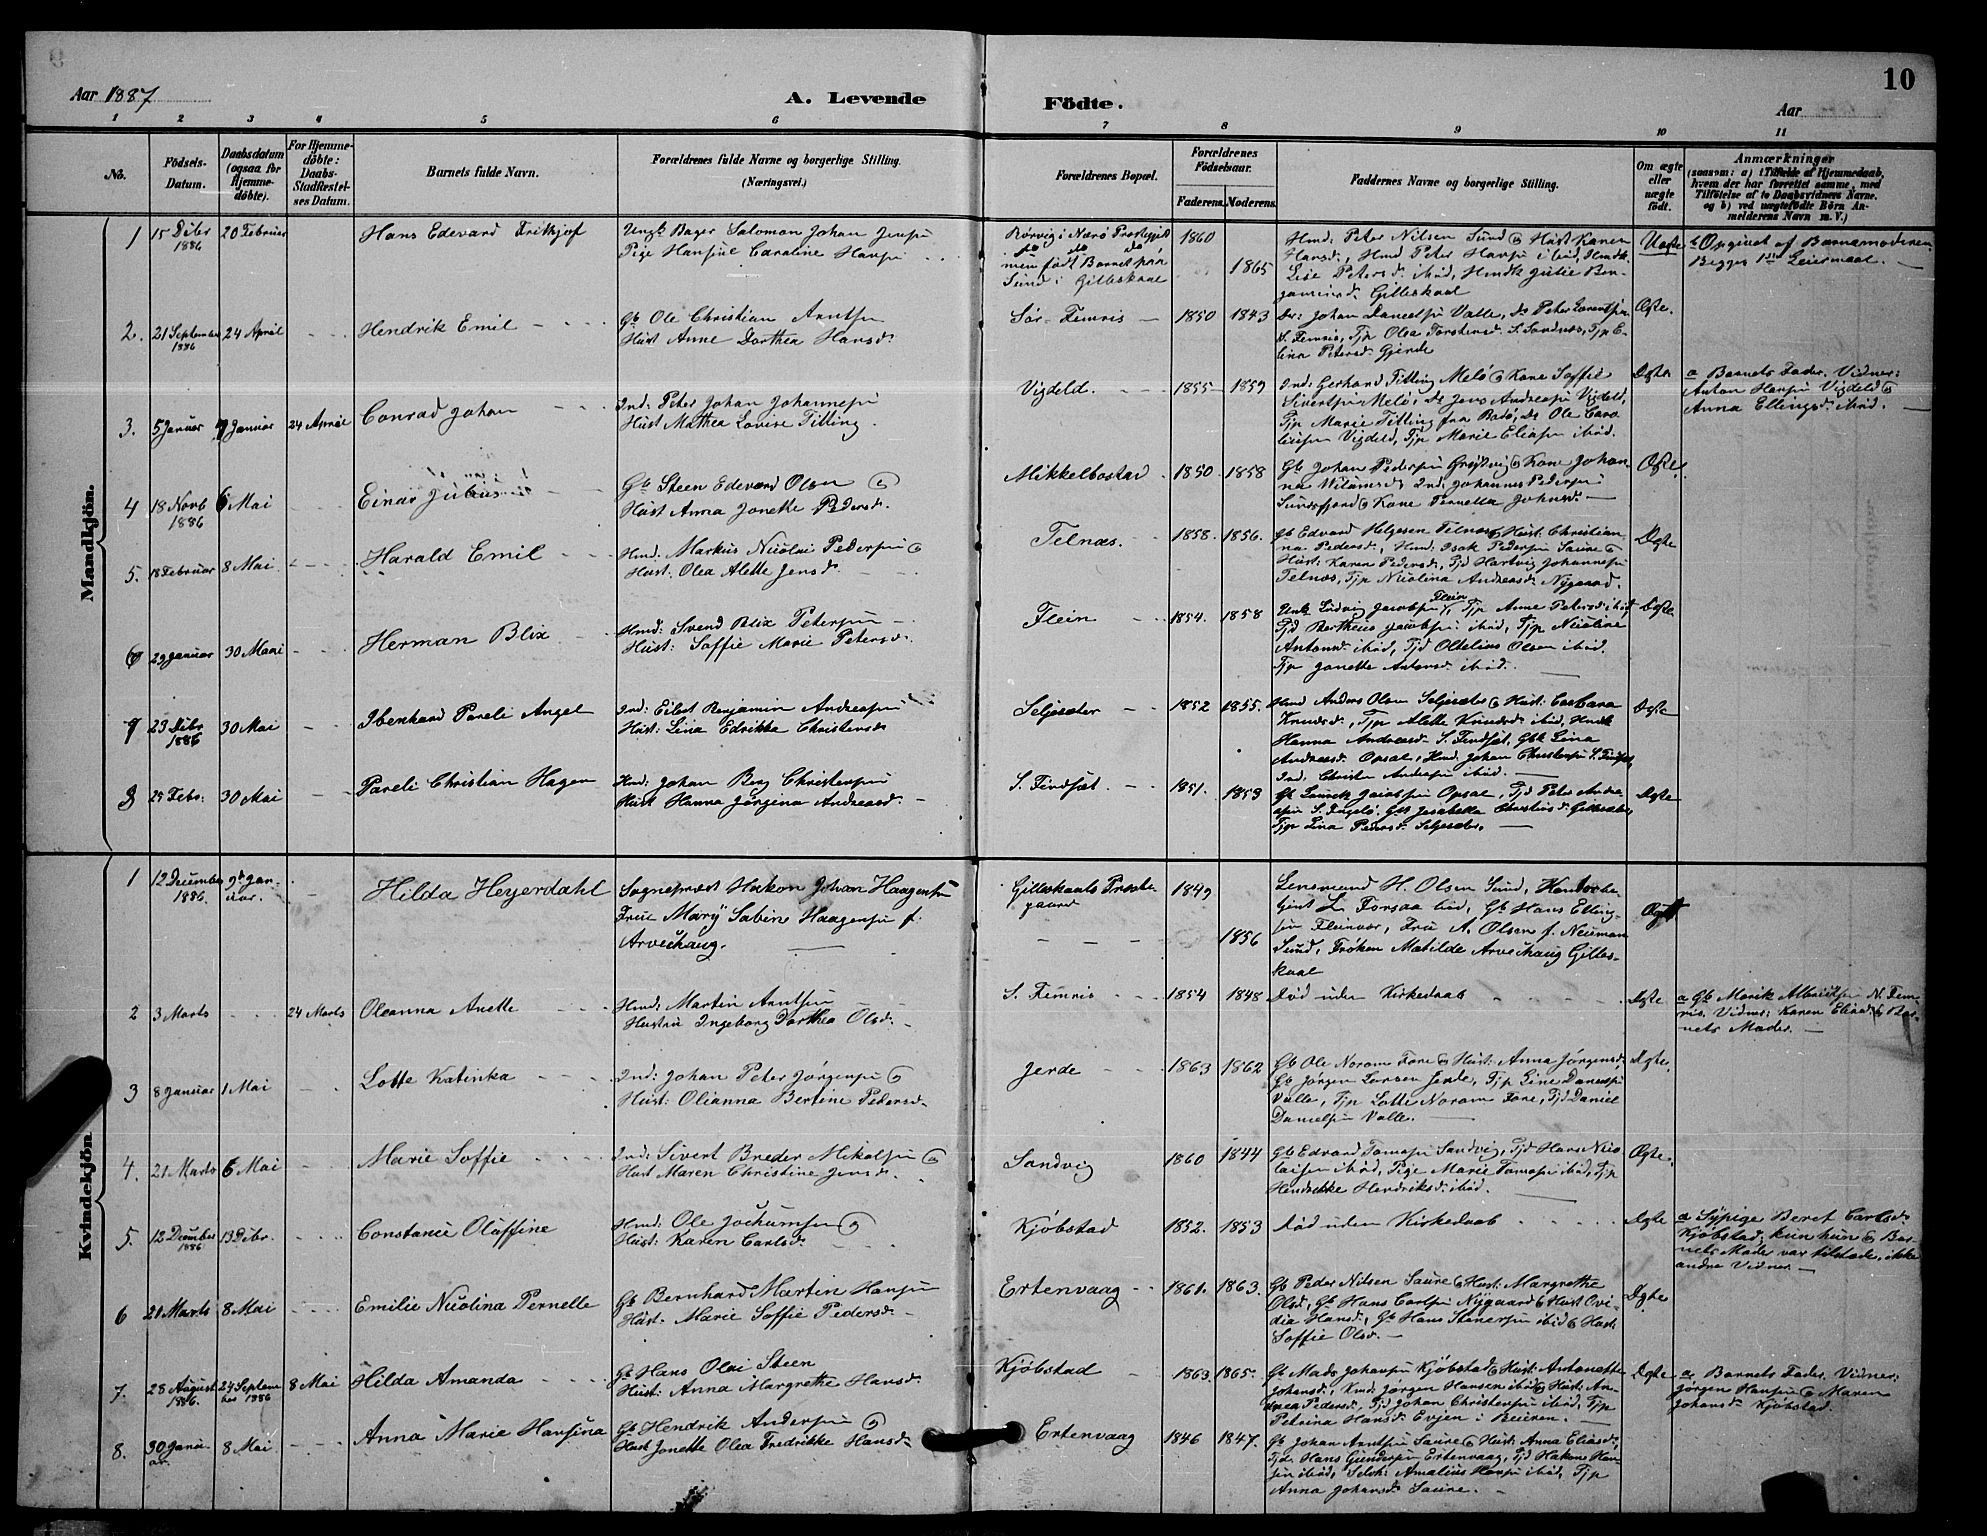 Aar 1887
A. Levende
Födte.
Aar
10
1 2 3 4 5 6 7 8 9 10 11
No.
Födsels-
Datum.
Daabsdatum
(ogsaa for
Hjemme-
döbte).
For Hjemme-
döbte:
Daabs-
Stadfæstel-
ses Datum.
Barnets fulde Navn.
Forældrenes fulde Navne og borgerlige Stilling.
(Næringsvei.)
Forældrenes Bopæl.
Forældrenes
Födselsaar.
Faderens.
Moderens.
Faddernes Navne og borgerlige Stilling.
Om ægte
eller
uægte
födt.
Anmærkninger
(saasom: a) i Tilfælde af Hjemmedaab,
hvem der har forrettet samme, med
Tilföielse af to Daabsvidners Navne.
og b) ved uægtefödte Börn An-
melderens Navn m. V.)
Mandkjön.
1
15 Debr
1886
20 Februar
Hans Edevard Frithjof
Ungk. Bager Salomon Johan Jensen
Pige Hansine Caroline Hansen
Rörvig i Nærö Præstegjeld
do do do
men födt Barnet paa
Sund i Gilleskaal
1860
1865
Hmd. Peter Nilsen Sund & Hust Karen
Hansd., Hmd Peter Hansen ibid, Hmdk
Lise Petersd. ibid, Hmdk Julie Ben-
jaminsd. Gilleskaal
Uægte
b Opgivet af Barnemoderen
Begges 1ste Leiermaal. —
2.
21 September
1886
24 April
Hendrik Emil
Gb Ole Christian Arntsen
Hust Anne Dorthea Hansd.
Sör-Femris
1850
1843
Dr: Johan Danielsen Valle, do Peter Larentsen
S. Femris, Tjp Olea Torstensd. S. Sandnæs, Tjp E-
lina Petersd. Gjerde
Ægte.
3.
5 Januar
9 Januar
24 April
Conrad Johan
Ind: Peter Johan Johannesen
Hust Mathea Lovise Titting.
Vigdeld.
1855
1859
Ind: Gerhard Titting Melö & Kone Soffie
Sivertsen Melö, do Jens Andreasen Vigdeld,
Tjp Marie Titting fra Bodö, Dr Ole Caro-
liusen Vigdeld, Tjp Marie Eliasen ibid.
Ægte
a Barnets Fader. Vidner:
Anton Hansen Vigdeld &
Anna Ellingsd. ibid. —
4
18 Novb
1886
6 Mai
Einar Julius
Gb Steen Edevard Olsen &
Hust Anna Jonette Pedersd.
Mikkelbostad
1850
1858
Gb Johan Pedersen Gröttvig & Kone Johan-
na Nilsmsd. Ind. Johannes Pedersen
Sundsfjord & Kone Pernella Johnsd. —
Ægte
5.
18 Februar
8 Mai
Harald Emil
Hmd: Markus Nicolai Pedersen &
Hust: Olea Alette Jensd.
Telnæs.
1858.
1856.
Gb Edvard Helgesen Telnæs & Hust: Christian-
na Pedersd., Hmd: Isak Pedersen Saure &
Hust: Karen Pedersd, Tjd Hartvig Johannesen
Telnæs, Tjp Nicolina Andreasd. Nygaard.
Ægte
6
29 Januar
30 Mai
Herman Blix
Hmd: Svend Blix Petersen
Hust: Soffie Marie Petersd.
Flein
1854.
1858
Ungk Ludvig Jacobsen Flein, Tjp Anne Petersd ibid
Tjd Bertheus Jacobsen ibid, Tjp Nicoline
Antonsd. ibid, Tjd Oltelius Olsen ibid.
Tjp Janette Antonsd. ibid. —
Ægte
7
23 Debr
1886
30 Mai
Ibenhard Pareli Angel
Ind: Eilert Benjamin Andreasen
Hust: Lina Edrikka Christensd.
Seljesæter
1852
1855.
Hmd Anders Olsen Seljesæter & Hust: Barbara
Knudsd., Tjp Alette Knudsd. ibid, Hmdk
Hanna Andreasd. S. Findset, Gbk Lina
Andreasd. Opsal, Hmd. Johan Christensen S. Findset,
Ind. Christen Andersen ibid. —
Ægte
8
25 Febr.
30 Mai
Pareli Christian Hagen
Hmd: Johan Berg Christensen
Hust Hanna Jörgina Andreasd.
S. Findset.
1851.
1853
Gb Laurits Jacobsen Opsal, Tjd Peter Andre-
asen S. Fugelö, Gbk Jesabella Christensd. Gillesæter,
Tjp Lina Pedersd. Seljesæter. —
Ægte
Kvindekjön
1
12 December
1886.
9de Jan-
uar.
Hilda Heyerdahl
Sogneprest Hakon Johan Haagensen
Frue Mary Sabine Haagensen f.
Arveschaug. —
Gilleskaals Præste-
gaard
1849
1856
Lensmand H. Olsen Sund, Kontorbe-
tjent L. Forsaa ibid, Gb Hans Elling-
sen Fleinvær, Frue A. Olsen f. Neuman
Sund, Fröken Matilde Arveschaug Gilles-
kaal
Ægte
2
3 Marts
24 Marts
Oleanna Anette
Hmd: Martin Arntsen
Hustru Ingeborg Dorthea Olsd.
S. Femris
1854
1848
Död uden Kirkedaab
Ægte
a Gb Marik Albrigtsen N. Fem-
ris. Vidner: Karen Eliasd. & Bar-
nets Moder. —
3
8 Januar
1 Mai
Lotte Katinka
Ind: Johan Peter Jörgensen &
Hust: Olianna Bertine Pedersd.
Jerde
1863
1862
Gb Ole Noram Fore & Hust: Anna Jörgensd.,
Gb Jörgen Larsen Jerde, Tjp Line Danielsen
Valle, Tjp Lotte Noram Fore, Tjd Daniel
Danielsen Valle. —
Ægte.
4.
21 Marts
6 Mai
Marie Soffie
Ind: Sivert Breder Mikalsen &
Hust Maren Christine Jensd.
Sandvig
1860
1844
Gb Edvard Tomasen Sandvig, Tjd Hans Nico-
laisen ibid, Pige Marie Tomasen ibid, Tjp
Hendrikke Hendriksd. ibid. —
Ægte.
5.
12 December
1886
13 Debr.
Constance Olaffine
Hmd: Ole Jochumsen &
Hust: Karen Carlsd.
Kjöbstad
1852.
1853
Död uden Kirkedaab
Ægte
a Sypige Beret Carlsd.
Kjöbstad; kun hun & Bar-
nets Moder var tilstede, ikke
andre Vidner. —
6
21 Marts
8 Mai
Emilie Nicolina Pernelle
Gb Bernhard Martin Hansen
Hust: Marie Soffie Pedersd.
Ertenvaag
1861.
1863.
Gb Peder Nilsen Saure & Hust: Margrethe
Olsd, Gb Hans Carlsen Nygaard & Hust Ovi-
dia Hansd., Gb Hans Stenersen ibid & Hust:
Soffie Olsd. —
Ægte
7.
28 August
1886.
24 Septem-
ber 1886
8 Mai
Hilda Amanda
Gb Hans Olai Steen
Hust: Anna Margrethe Hansd.
Kjöbstad
1863.
1865.
Gb Mads Johansen Kjöbstad & Hust: Antonette
Johansd., Hmd. Jörgen Hansen ibid & Hust: An-
drea Pedersd., Tjd Johan Christensen ibid, Tjp
Petrina Hansd. Evjen i Beiren. —
Ægte
a. Barnets Fader. Vidner:
Jörgen Hansen & Maren
Johansd. Kjöbstad.
8.
30 Janu-
ar.
8 Mai
Anna Marie Hansina
Gb Hendrik Andersen &
Hust Jonette Olea Fredrikke Hansd.
Ertenvaag
1846
1847.
Gb Johan Arntsen Saure & Hust: Anna Eliasd.,
Tjd. Hans Gundersen Ertenvaag, Tjd Hakon Han-
sen ibid, Amalius Hansen ibid, Tjp
Anna Johansd. Saure. —